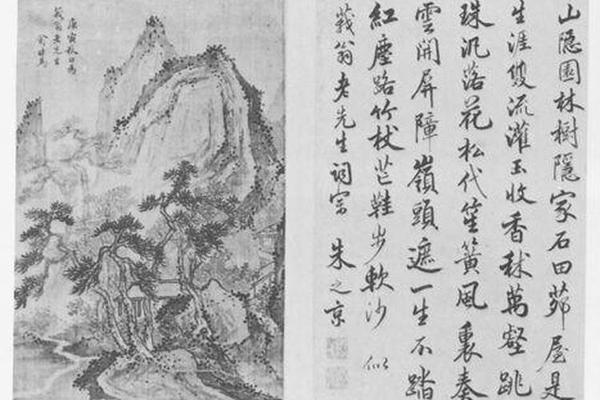 山隐園林樹隱家石田茆屋是
生涯雙流灌玉收香秫萬壑跳
珠汎落花松代笙簧風裏奏
雲開屏障嶺頭遮一生不踏
紅塵路竹杖芒鞋步軟沙 似
莪翁老先生詞宗 朱之京
庚寅秋日為
莪翁老先生